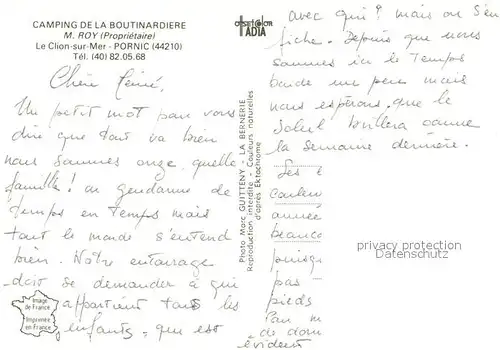 CAMPING DE LA BOUTINARDIERE
M. ROY (Propriétaire)
Le Clion-sur-Mer - PORNIC (44210)
Tél. (40) 82.05.68
Chère
Un petit mot pour vous
dire que tout va bien
nous sommes onze, quelle
famille! on gendarme de
temps en temps mais
tout le monde s'entend
bien. Notre entourage
doit se demander à qui
appartient tous les
enfants, qui est
Image
de France
Imprimée
en France
ADIA
Photo Marc GUITTENY - LA BERNERIE
Reproduction interdite - Couleurs naturelles
d'après Ektachrome
avec qui? mais on s'en
fiche. Depuis que nous
sommes ici le Temps
boude un peu mais
nous espérons que le
Soleil brillera comme
la semaine dernière.
Les
couleu
année
beauco
puisq
pas
pieds
de dom
évident
privacy protection
Datenschutz